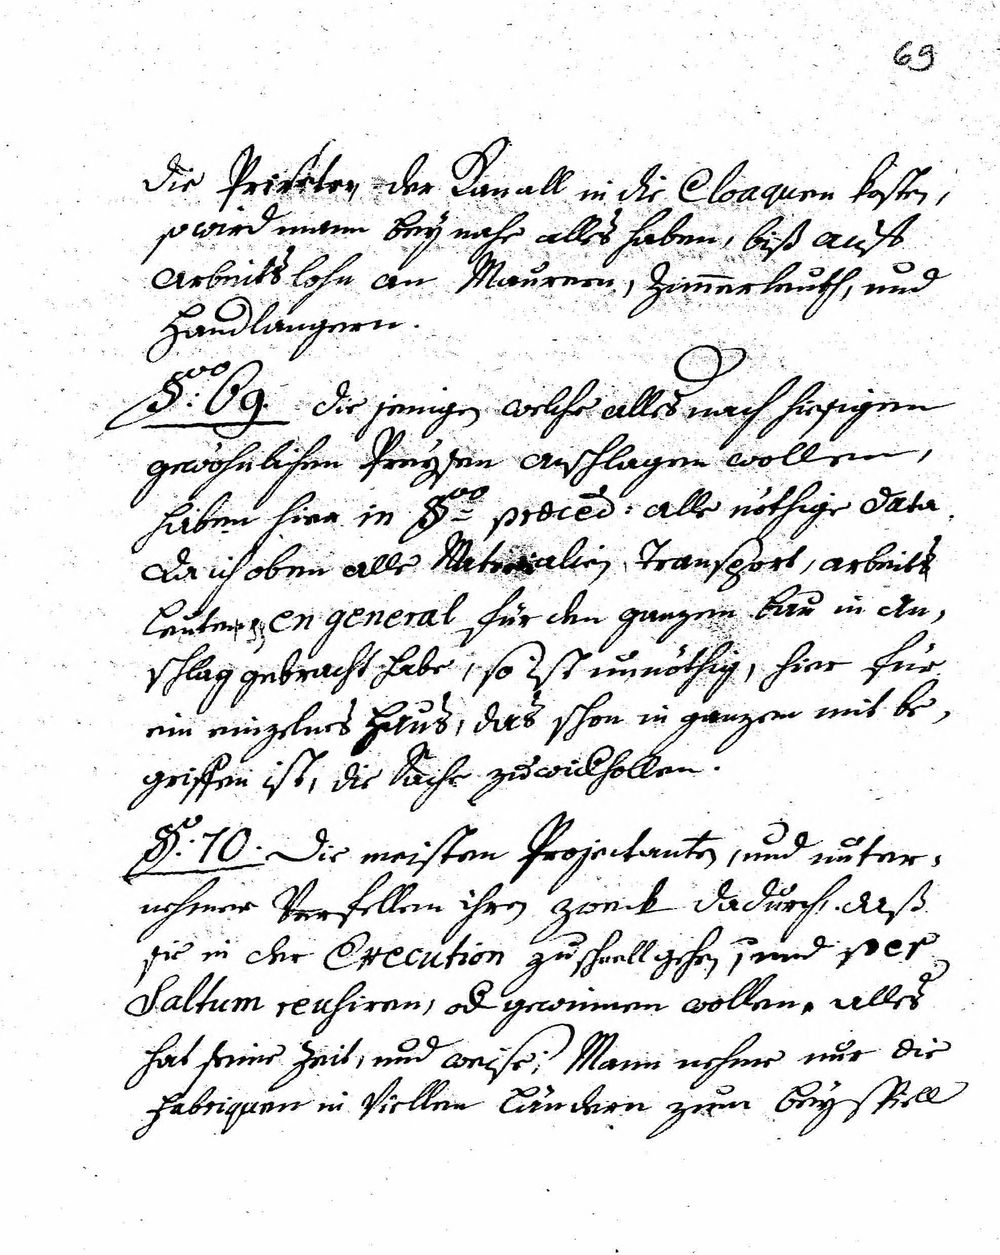 69
die Priveter, der Kanall in die Cloaquen kosten,
so wird mann bey nahe alles haben, biß aufs
arbeits lohn an Maurern, Zimmerleuth, und
Handlangern.
§vo: 69. die jenigen welche alles nach hiesigen
gewöhnlichen Preysen anschlagen wollen,
haben hier in §vo praeced: alle nöthige Data.
da ich oben alle Materialien, Transport, arbeits
leuten en general für den ganzen bau in An,
schlag gebracht habe, so ist unnöthig, hier für
ein einzelnes Haus, das schon in ganzen mit be,
griffen ist, die Sache zu widhollen.
§o: 70. Die meisten Projectanten, und unter,
nehmer Verfellen ihren zweck dadurch, daß
sie in der Execution zu schnell gehen, und per
Saltum reuhsiren, od gewinnen wollen. alles
hat seine Zeit, und weise; Mann nehme nur die
Fabriquen in Viellen Ländern zum beyspiell